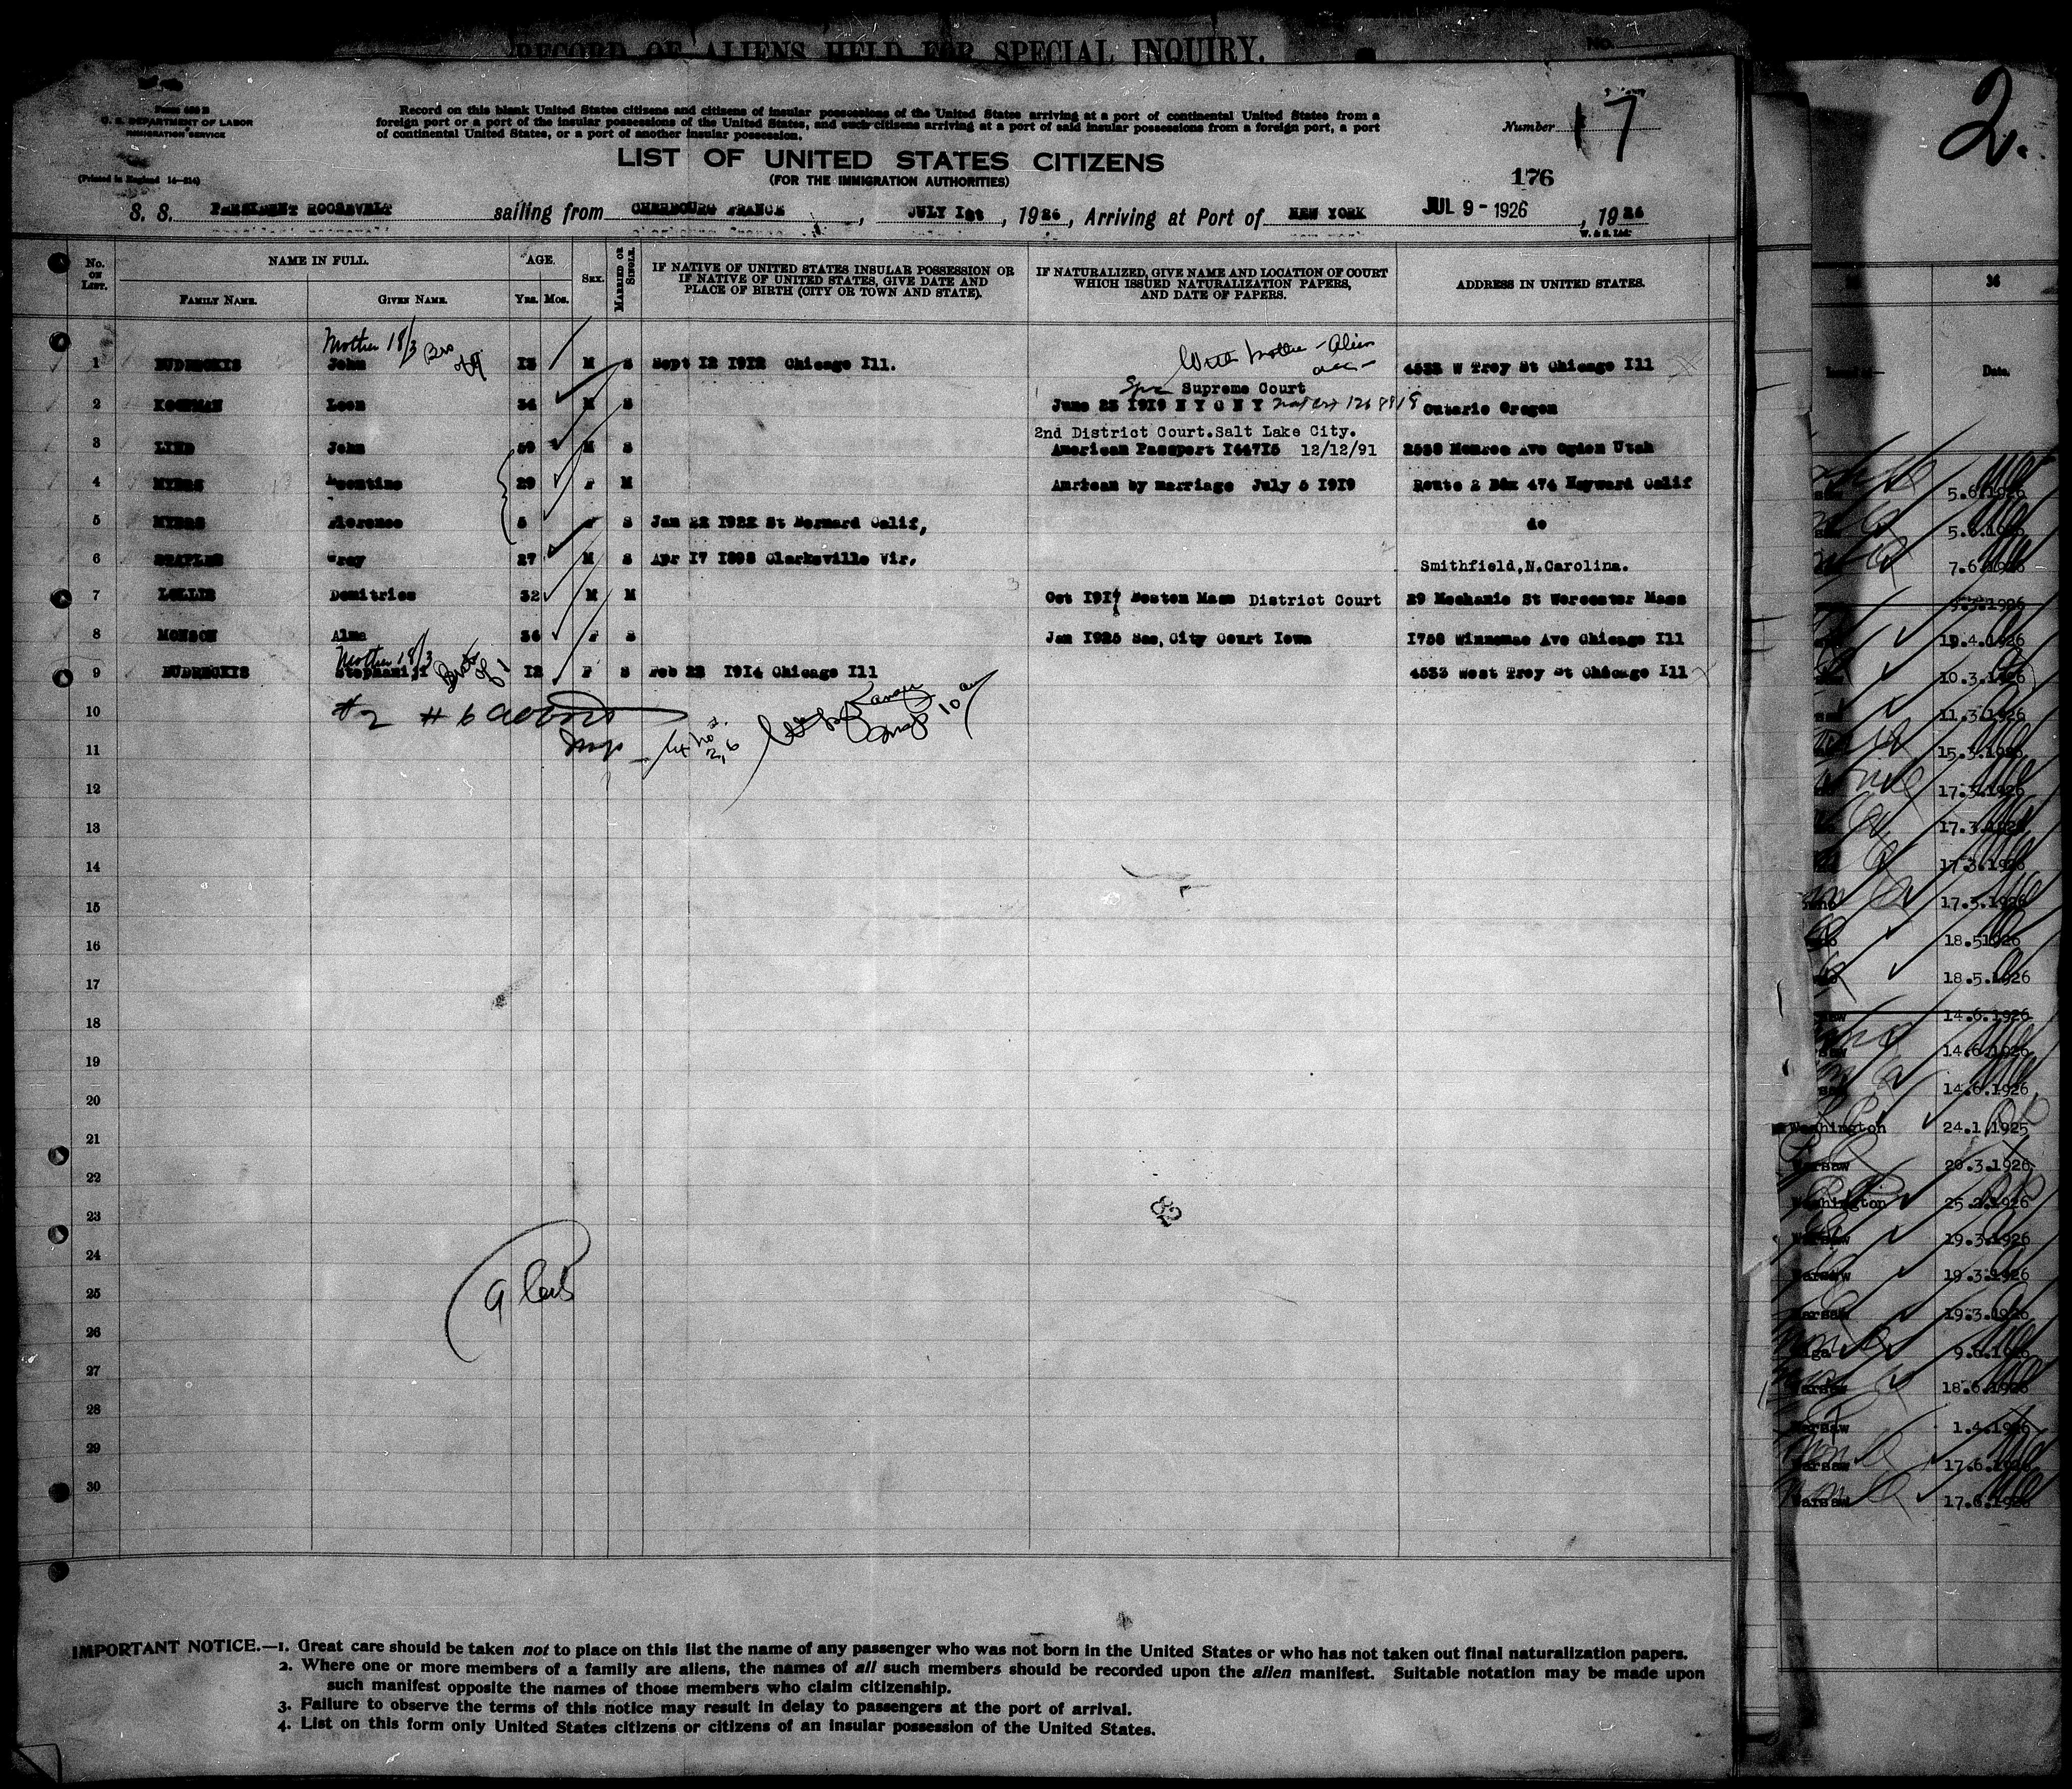 RECORD OF ALIENS HELD FOR SPECIAL INQUIRY.
No.
2.
U. S. DEPARTMENT OF LABOR
IMMIGRATION SERVICE
(Printed in England 14—214)
Record on this blank United States citizens and citizens of insular possessions of the United States arriving at a port of continental United States from a
foreign port or a port of the insular possessions of the United States, and such citizens arriving at a port of said insular possessions from a foreign port, a port
of continental United States, or a port of another insular possession.
Number 17
LIST OF UNITED STATES CITIZENS
(FOR THE IMMIGRATION AUTHORITIES)
176
S. S. PRESIDENT ROOSEVELT sailing from CHERBOURG FRANCE, JULY Ist, 1926, Arriving at Port of NEW YORK JUL 9 - 1926, 1926
No. ON LIST. NAME IN FULL. FAMILY NAME. GIVEN NAME. AGE. Yrs. Mos. SEX. MARRIED OR SINGLE.
IF NATIVE OF UNITED STATES INSULAR POSSESSION OR
IF NATIVE OF UNITED STATES, GIVE DATE AND
PLACE OF BIRTH (CITY OR TOWN AND STATE).
IF NATURALIZED, GIVE NAME AND LOCATION OF COURT
WHICH ISSUED NATURALIZATION PAPERS,
AND DATE OF PAPERS.
ADDRESS IN UNITED STATES.
Mother 18/3 Bro of 9
With mother - Alien
1 BUDRECKIS John 13 M S Sept 12 1912 Chicago Ill. 4533 W Troy St Chicago Ill
Supreme Court
2 KOOPMAN Leon 34 M S June 23 1919 N Y C N Y Ontario Oregon
2nd District Court.Salt Lake City.
3 LIND John 59 M S American Passport 144715 12/12/91 2538 Monroe Ave Ogden Utah
4 MYERS 29 F M American by marriage July 5 1919 Route 2 Box 474 Hayward Calif
5 MYERS Florence 5 F S Jan 22 1922 St Bernard Calif, do
6 STAPLES Grey 27 M S Apr 17 1898 Clarksville Vir. Smithfield,N.Carolina.
7 LOLLIS Demitrios 32 M M Oct 1917 Boston Mass District Court 29 Mechanic St Worcester Mass
8 MONSON Alma 36 F S Jan 1925 Sac, City Court Iowa 1758 Winnemac Ave Chicago Ill
Mother 18/3 of 1
9 BUDRECKIS 12 F S Feb 22 1914 Chicago Ill 4533 West Troy St Chicago Ill
10
#2 #6
11
12
13
14
15
16
17
18
19
20
21
22
23
82
24
25
9
26
27
28
29
30
IMPORTANT NOTICE.—1. Great care should be taken not to place on this list the name of any passenger who was not born in the United States or who has not taken out final naturalization papers.
2. Where one or more members of a family are aliens, the names of all such members should be recorded upon the alien manifest. Suitable notation may be made upon
such manifest opposite the names of those members who claim citizenship.
3. Failure to observe the terms of this notice may result in delay to passengers at the port of arrival.
4. List on this form only United States citizens or citizens of an insular possession of the United States.
36
Date.
5.6.1926
5.6.1926
7.6.1926
9.3.1926
19.4.1926
10.3.1926
11.3.1926
15.3.1926
17.3.1926
17.3.1926
17.3.1926
17.3.1926
18.51926
18.5.1926
14.6.1926
14.6.1926
14.6.1926
Washington 24.1.1925
Warsaw 20.3.1926
Washington 25.2.1926
Warsaw 19.3.1926
Warsaw 19.3.1926
Warsaw 19.3.1926
Riga 9.6.1926
Warsaw 18.6.1926
Warsaw 1.4.1926
Warsaw 17.6.1926
Warsaw 17.6.1926